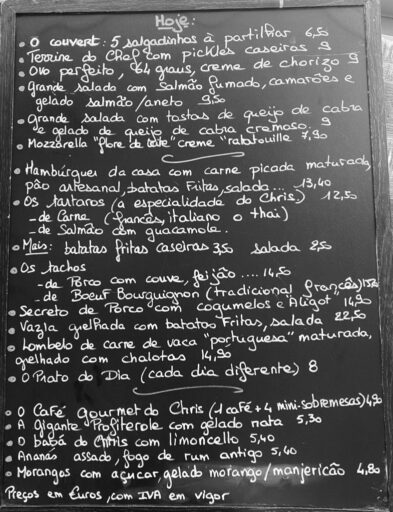 Hoje:
• O couvert: 5 salgadinhos à partilhar 6,50
• Terrine do Chef com pickles caseiros 9
• Ovo perfeito, 64 graus, creme de chorizo 9
• Grande salada com Salmão fumado, camarões e
gelado salmão/aneto 9,50
• Grande salada com tostas de queijo de cabra
e gelado de queijo de cabra cremoso. 9
• Mozzarella "fiore de latte" creme "ratatouille" 7,90
• Hambúrguer da casa com carne picada maturada,
pão artesanal, batatas Fritas, salada... 13,40
• Os tartaros (a especialidade do Chris) 12,50
- de Carne (francês, italiano o thai)
- de Salmão com guacamole.
• Mais: batatas fritas caseiras 3,50 salada 2,50
• Os tachos
- de Porco com couve, feijão .... 14,50
- de Boeuf Bourguignon (tradicional francês) 15,20
• Secreto de Porco com cogumelos e Aligot 14,90
• Vazia grelhada com batatas Fritas, salada 22,50
• Lombelo de carne de vaca "portuguesa" maturada,
grelhado com chalotas 14,90
• O Prato do Dia (cada dia diferente) 8
• O Café gourmet do Chris (1 café + 4 mini-sobremesas) 4,90
• A Gigante Profiterole com gelado nata 5,30
• O babá do Chris com limoncello 5,40
• Ananás assado, fogo de rum antigo 5,40
• Morangos com açucar, gelado morango/manjericão 4,80
Preços em Euros, com IVA em vigor